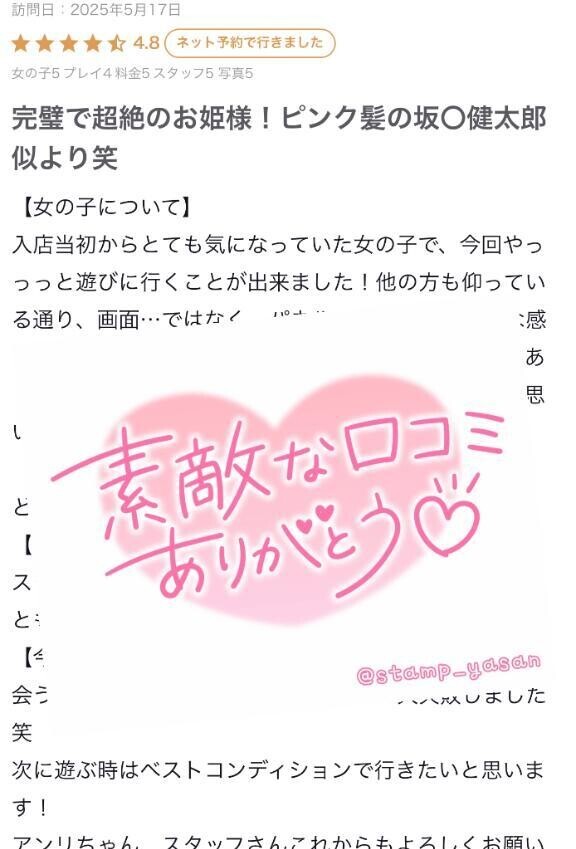 訪問日：2025年5月17日
4.8 ネット予約で行きました
女の子5 プレイ4 料金5 スタッフ5 写真5
完璧で超絶のお姫様！ピンク髪の坂〇健太郎
似より笑
【女の子について】
入店当初からとても気になっていた女の子で、今回やっ
っっと遊びに行くことが出来ました！他の方も仰ってい
る通り、画面…ではなく、パネル
な感
あ
思
い
素敵な口コミ
ありがとう
ど
【
ス
と
【今
@stamp_yasan
会う
大失敗しました
笑
次に遊ぶ時はベストコンディションで行きたいと思いま
す！
アンリちゃん、スタッフさんこれからもよろしくお願い